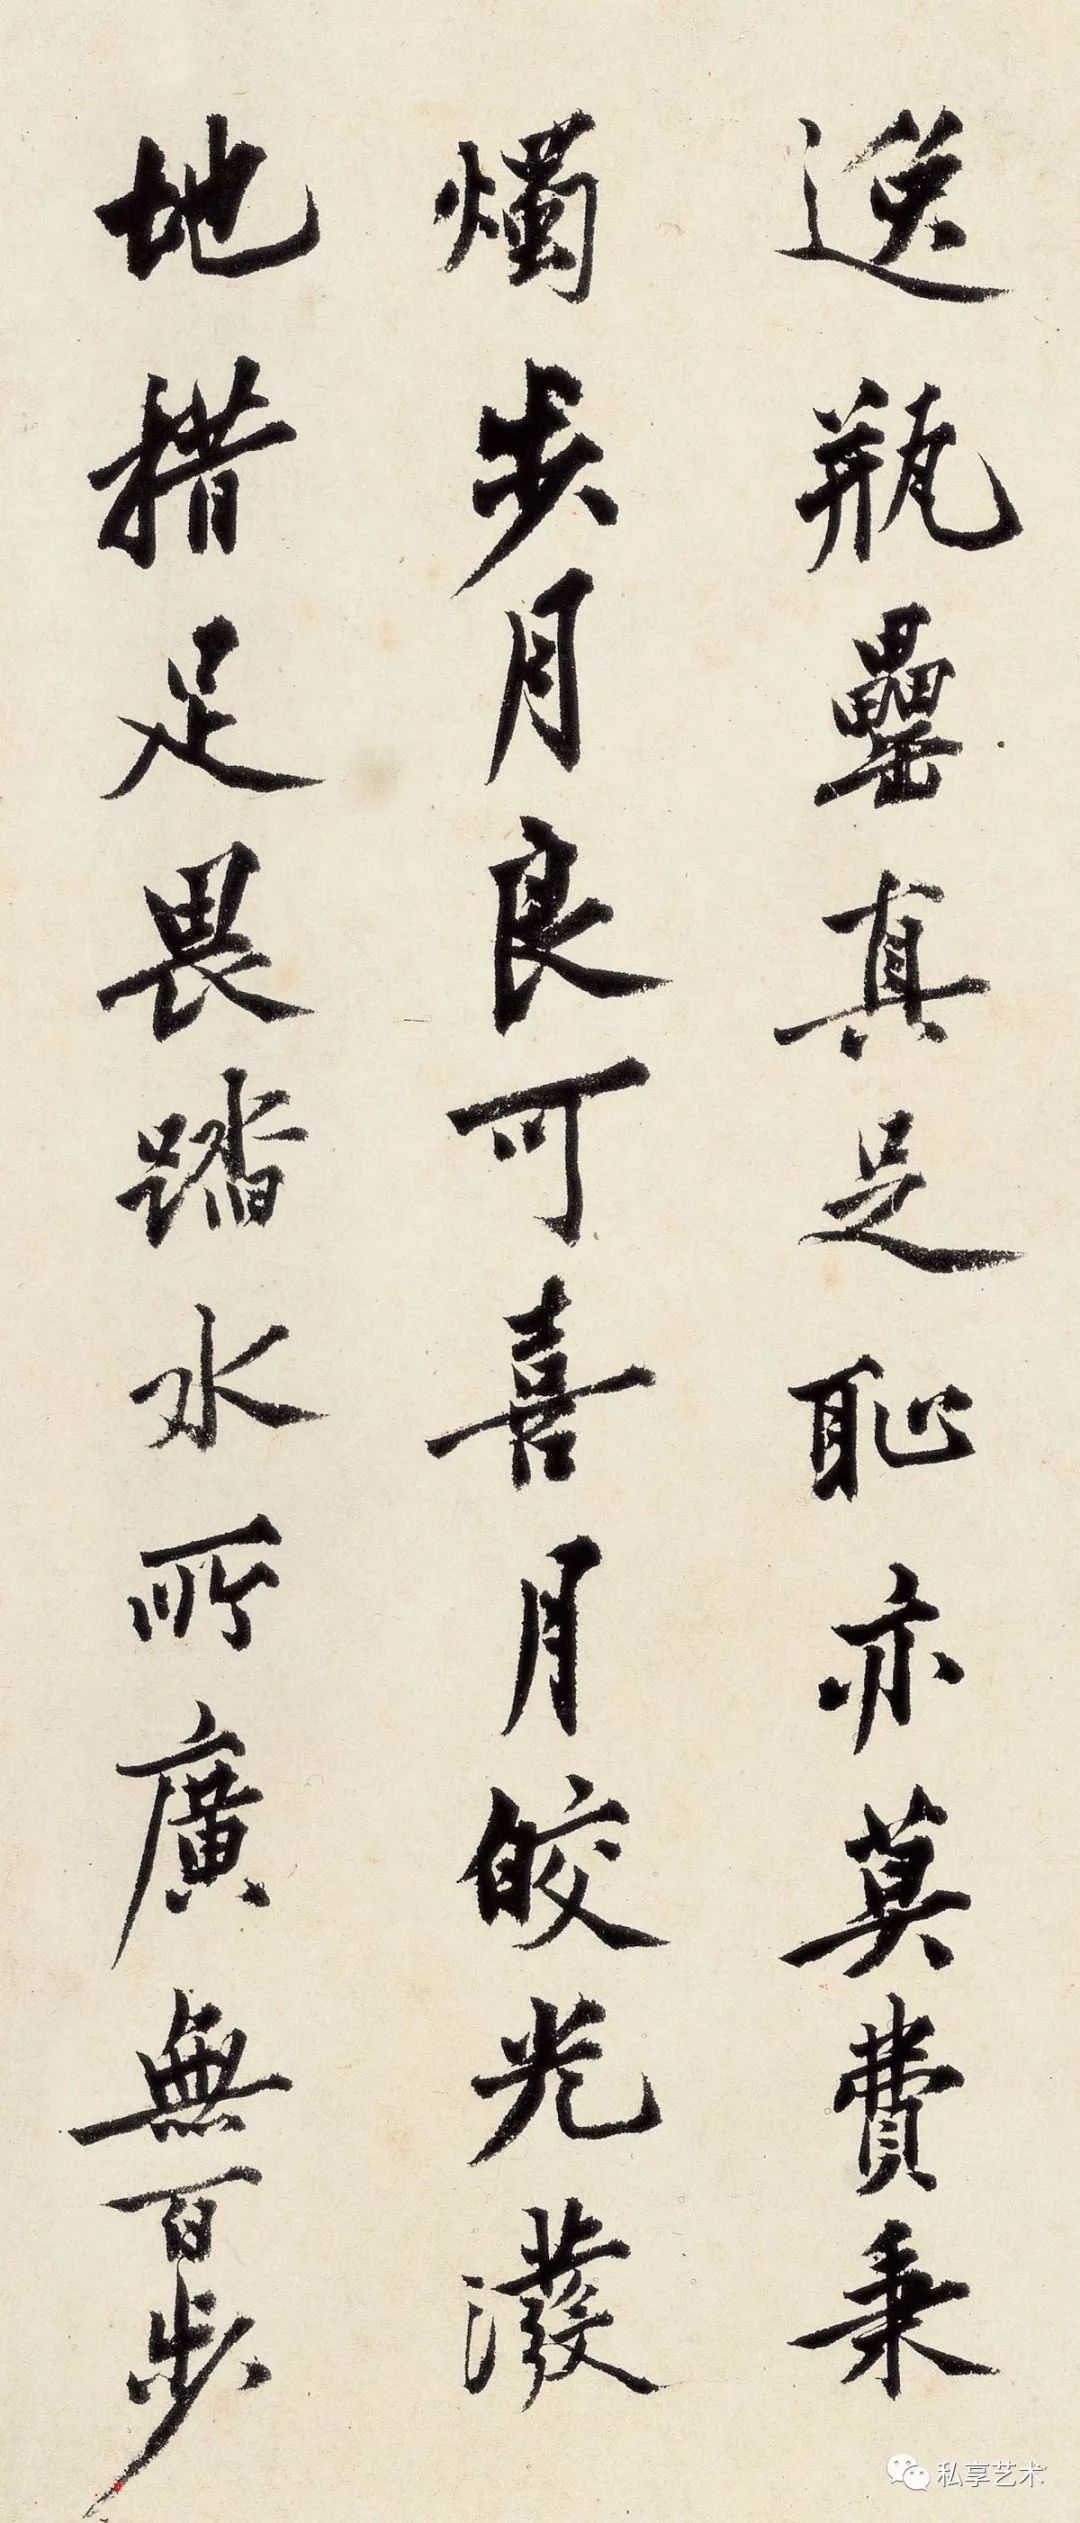 逸瓶罍真足恥亦莫費秉
燭步月良可喜月皎光潑
地措足畏踏水所廣無百步
私享艺术